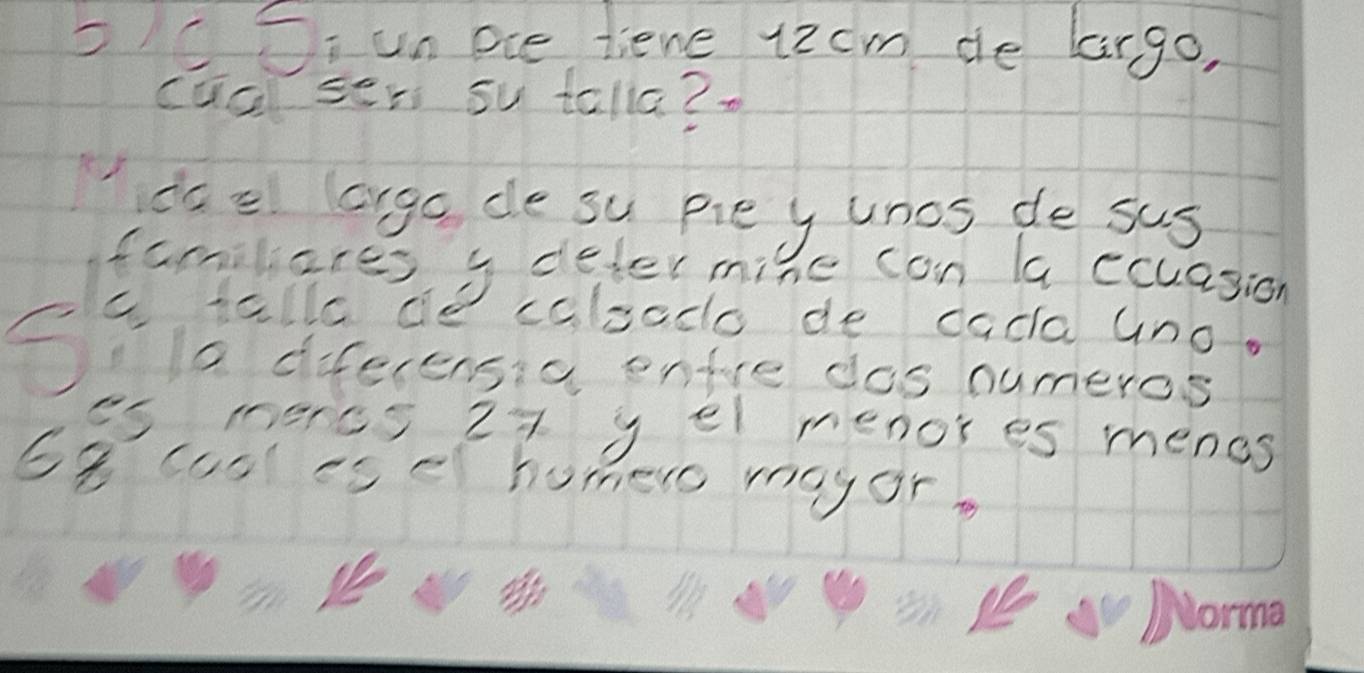 b) ¿Si un pie tiene 12cm de largo,
cual seri su talla?
Mida el largo de su pie y unos de sus
familiares y determine con la ecuasion
la talla de calsado de cada uno.
Si la diferensia entre dos numeros
es menos 27 y el menor es menos
68 cual es el numero mayor.
Norma